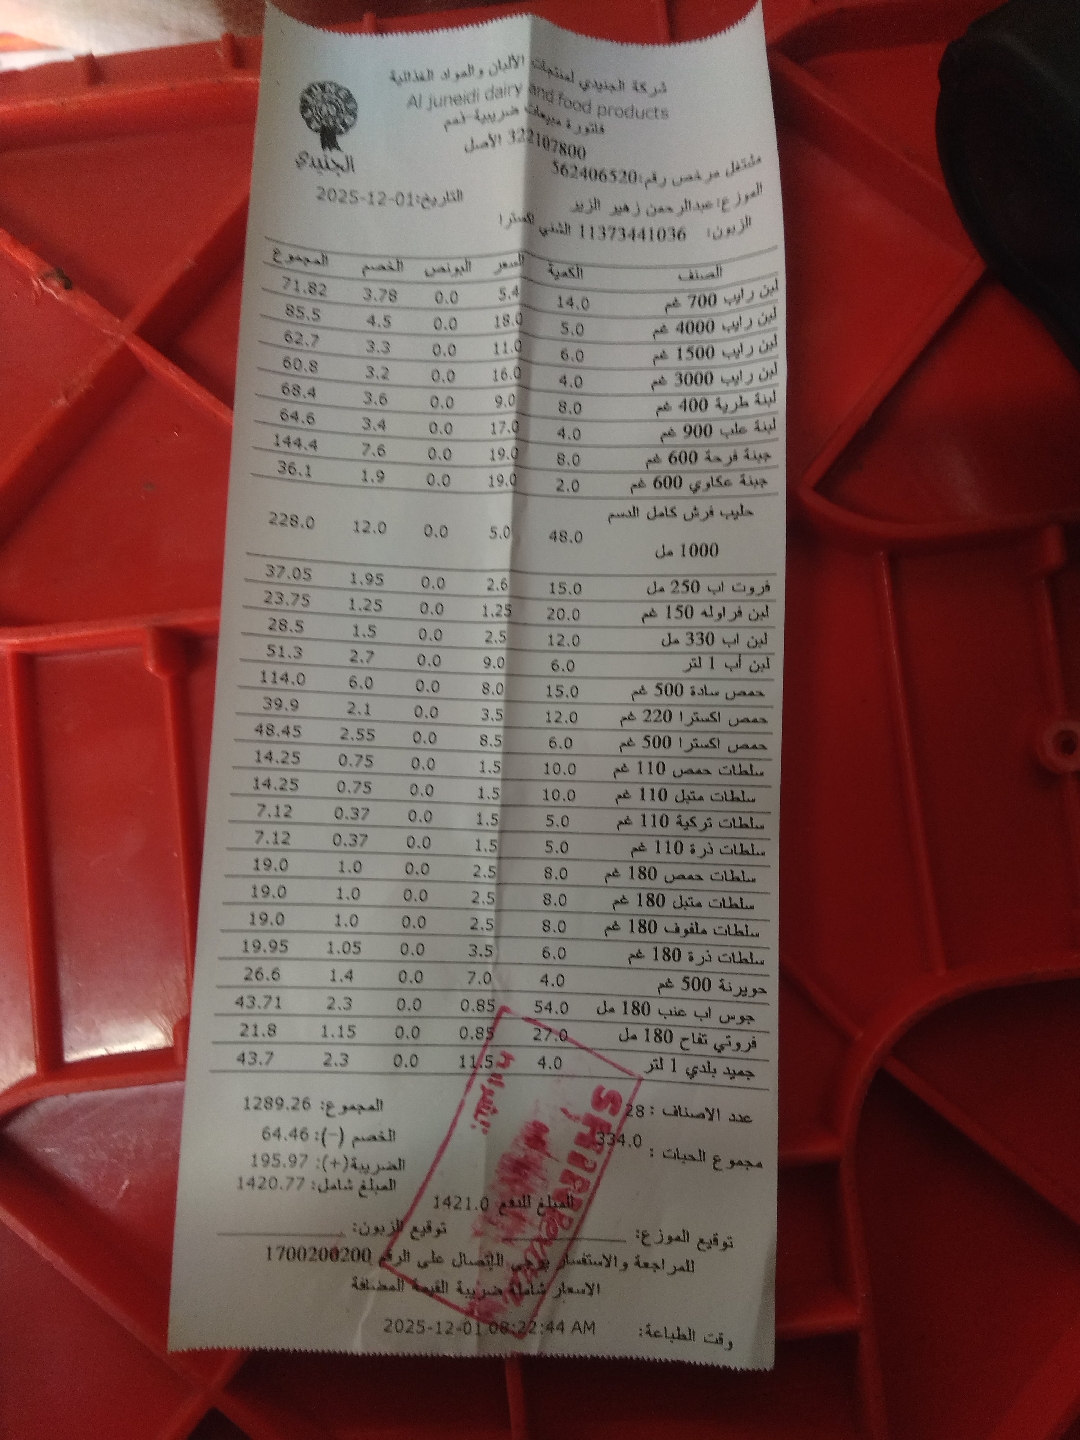 شركة الجنيدي لمنتجات الألبان والمواد الغذائية
Al juneidi dairy and food products
الجنيدي
فاتورة مبيعات ضريبية-ذمم
322107800 الأصل
مشتغل مرخص رقم:562406520
التاريخ:2025-12-01
الموزع: عبدالرحمن زهير الزير
الزبون: 11373441036 الشني اكسترا
الصنف الكمية السعر البونص الخصم المجموع
لبن رايب 700 غم 14.0 5.4 0.0 3.78 71.82
لبن رايب 4000 غم 5.0 18.0 0.0 4.5 85.5
لبن رايب 1500 غم 6.0 11.0 0.0 3.3 62.7
لبن رايب 3000 غم 4.0 16.0 0.0 3.2 60.8
لبنة طرية 400 غم 8.0 9.0 0.0 3.6 68.4
لبنة علب 900 غم 4.0 17.0 0.0 3.4 64.6
جبنة فرحة 600 غم 8.0 19.0 0.0 7.6 144.4
جبنة عكاوي 600 غم 2.0 19.0 0.0 1.9 36.1
حليب فرش كامل الدسم
1000 مل 48.0 5.0 0.0 12.0 228.0
فروت اب 250 مل 15.0 2.6 0.0 1.95 37.05
لبن فراوله 150 غم 20.0 1.25 0.0 1.25 23.75
لبن اب 330 مل 12.0 2.5 0.0 1.5 28.5
لبن أب 1 لتر 6.0 9.0 0.0 2.7 51.3
حمص سادة 500 غم 15.0 8.0 0.0 6.0 114.0
حمص اكسترا 220 غم 12.0 3.5 0.0 2.1 39.9
حمص اكسترا 500 غم 6.0 8.5 0.0 2.55 48.45
سلطات حمص 110 غم 10.0 1.5 0.0 0.75 14.25
سلطات متبل 110 غم 10.0 1.5 0.0 0.75 14.25
سلطات تركية 110 غم 5.0 1.5 0.0 0.37 7.12
سلطات ذرة 110 غم 5.0 1.5 0.0 0.37 7.12
سلطات حمص 180 غم 8.0 2.5 0.0 1.0 19.0
سلطات متبل 180 غم 8.0 2.5 0.0 1.0 19.0
سلطات ملفوف 180 غم 8.0 2.5 0.0 1.0 19.0
سلطات ذرة 180 غم 6.0 3.5 0.0 1.05 19.95
حويرنة 500 غم 4.0 7.0 0.0 1.4 26.6
جوس اب عنب 180 مل 54.0 0.85 0.0 2.3 43.71
فروتي تفاح 180 مل 27.0 0.85 0.0 1.15 21.8
جميد بلدي 1 لتر 4.0 11.5 0.0 2.3 43.7
عدد الاصناف : 28
المجموع: 1289.26
مجموع الحبات : 334.0
الخصم (-): 64.46
الضريبة(+): 195.97
المبلغ شامل: 1420.77
المبلغ للدفع 1421.0
توقيع الموزع: توقيع الزبون:
للمراجعة والاستفسار يرجى الاتصال على الرقم 1700200200
الاسعار شاملة ضريبة القيمة المضافة
وقت الطباعة: 2025-12-01 08:22:44 AM